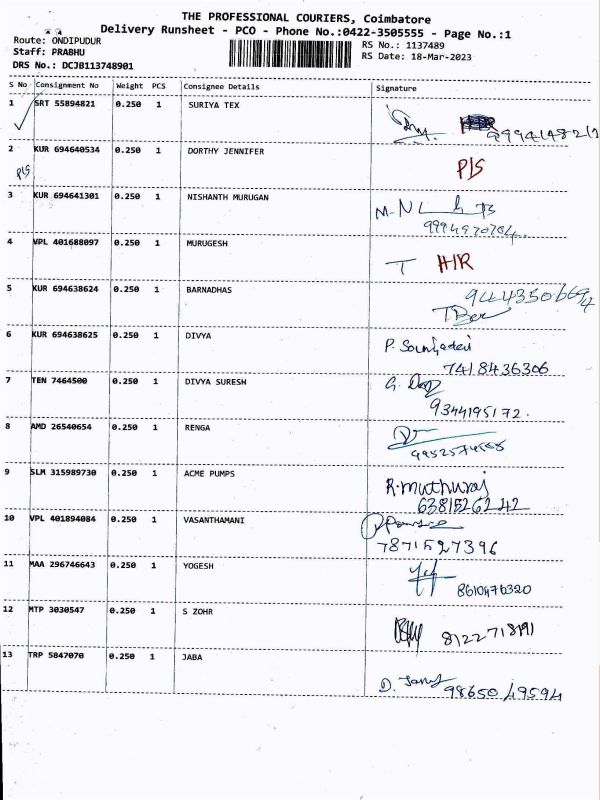 THE PROFESSIONAL COURIERS, Coimbatore
Delivery Runsheet - PCO - Phone No.:0422-3505555 - Page No.:1
Route: ONDIPUDUR
Staff: PRABHU
DRS No.: DCJB113748901
RS No.: 1137489
RS Date: 18-Mar-2023
S No Consignment No Weight PCS Consignee Details Signature
1 SRT 55894821 0.250 1 SURIYA TEX
2 KUR 694640534 0.250 1 DORTHY JENNIFER P/S
P/S
3 KUR 694641301 0.250 1 NISHANTH MURUGAN
4 VPL 401688097 0.250 1 MURUGESH
5 KUR 694638624 0.250 1 BARNADHAS
6 KUR 694638625 0.250 1 DIVYA
7418436306
7 TEN 7464500 0.250 1 DIVYA SURESH
9344195172.
8 AMD 26540654 0.250 1 RENGA
9 SLM 315989730 0.250 1 ACME PUMPS R.muthuraj
6381526242
10 VPL 401894084 0.250 1 VASANTHAMANI
7871527396
11 MAA 296746643 0.250 1 YOGESH
8610476320
12 MTP 3030547 0.250 1 S ZOHR
13 TRP 5847070 0.250 1 JABA
98650 49594